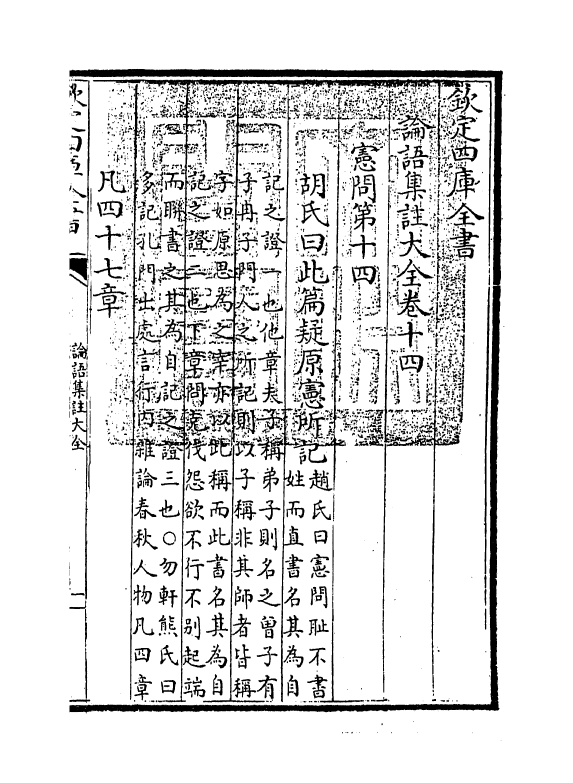 欽定四庫全書
論語集註大全卷十四
憲問第十四
胡氏曰此篇疑原憲所記
趙氏曰憲問耻不書
姓而直書名其為自
記之證一也他章夫子稱弟子則名之曽子有
子冉子門人之所記則以子稱非其師者皆稱
字如原思為之宰亦以此稱而此書名其為自
記之證二也下章問克伐怨欲不行不别起端
而聯書之其為自記之證三也○勿軒熊氏曰
多記孔門出處言行内雜論春秋人物凡四章
凡四十七章
欽定四庫全書
論語集註大全